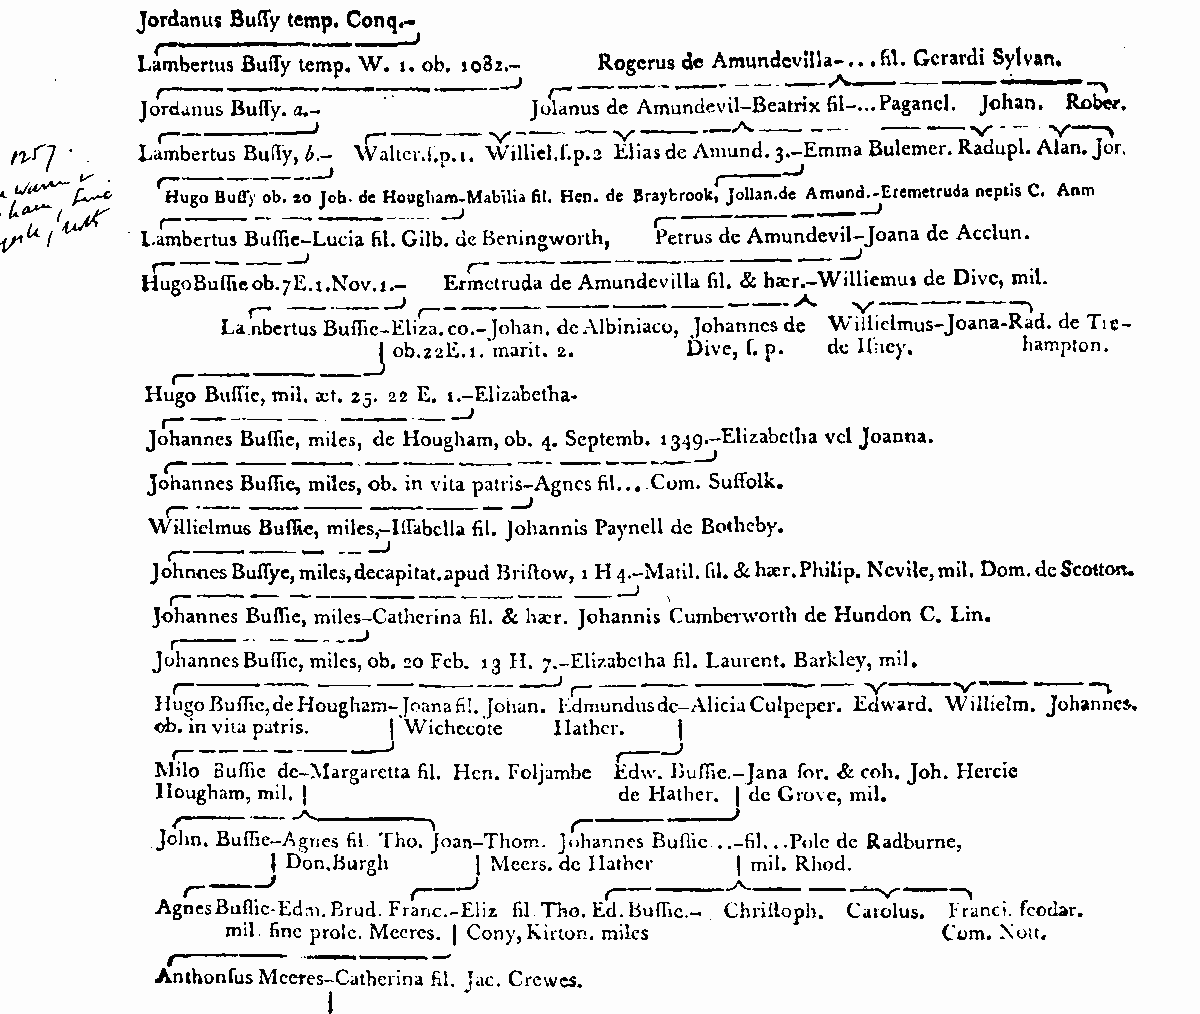 Jordanus Buſſy temp. Conq.-
Lambertus Buſſy temp. W. 1. ob. 1082.- Rogerus de Amundevilla-...fil. Gerardi Sylvan.
Jordanus Buſſy. a.- Jolanus de Amundevil-Beatrix fil-...Paganel. Johan. Rober.
Lambertus Buſſy, b.- Walter.ſ.p.1. Williel.ſ.p.2 Elias de Amund. 3.-Emma Bulemer. Radupl. Alan. Jor.
1257.
Hugo Buſſy ob. 20 Joh. de Hougham-Mabilia fil. Hen. de Braybrook, Jollan.de Amund.-Eremetruda neptis C. Anm
Lambertus Buſſie-Lucia fil. Gilb. de Beningworth, Petrus de Amundevil-Joana de Acclun.
Hugo Buſſie ob.7E.1.Nov.1.- Ermetruda de Amundevilla fil. & hær.-Williemus de Dive, mil.
Lambertus Buſſie-Eliza. co.-Johan. de Albiniaco, Johannes de Willielmus-Joana-Rad. de Tre-
ob.22E.1. marit. 2. Dive, ſ. p. de hampton.
Hugo Buſſie, mil. æt. 25. 22 E. 1.-Elizabetha.
Johannes Buſſie, miles, de Hougham, ob. 4. Septemb. 1349.-Elizabetha vel Joanna.
Johannes Buſſie, miles, ob. in vita patris-Agnes fil....Com. Suffolk.
Willielmus Buſſie, miles,-Iſſabella fil. Johannis Paynell de Botheby.
Johnnes Buſſye, miles, decapitat. apud Briſtow, 1 H 4.-Matil. fil. & hær. Philip. Nevile, mil. Dom. de Scotton.
Johannes Buſſie, miles-Catherina fil. & hær. Johannis Cumberworth de Hundon C. Lin.
Johannes Buſſie, miles, ob. 20 Feb. 13 H. 7.-Elizabetha fil. Laurent. Barkley, mil.
Hugo Buſſie, de Hougham-Joana fil. Johan. Edmundus de-Alicia Culpeper. Edward. Willielm. Johannes.
ob. in vita patris. Wichecote Hather.
Milo Buſſie de-Margaretta fil. Hen. Foljambe Edw. Buſſie.-Jana ſor. & coh. Joh. Hercie
Hougham, mil. de Hather. de Grove, mil.
John. Buſſie-Agnes fil. Tho. Joan-Thom. Johannes Buſſie...-fil...Pole de Radburne,
Don.Burgh Meers. de Hather mil. Rhod.
Agnes Buſſie-Edm. Brud. Franc.-Eliz fil. Tho. Ed. Buſſie.- Chriſtoph. Carolus. Franci. feodar.
mil. fine prole. Meeres. Cony, Kirton. miles Com. Nott.
Anthonſus Meeres-Catherina fil. Jac. Crewes.